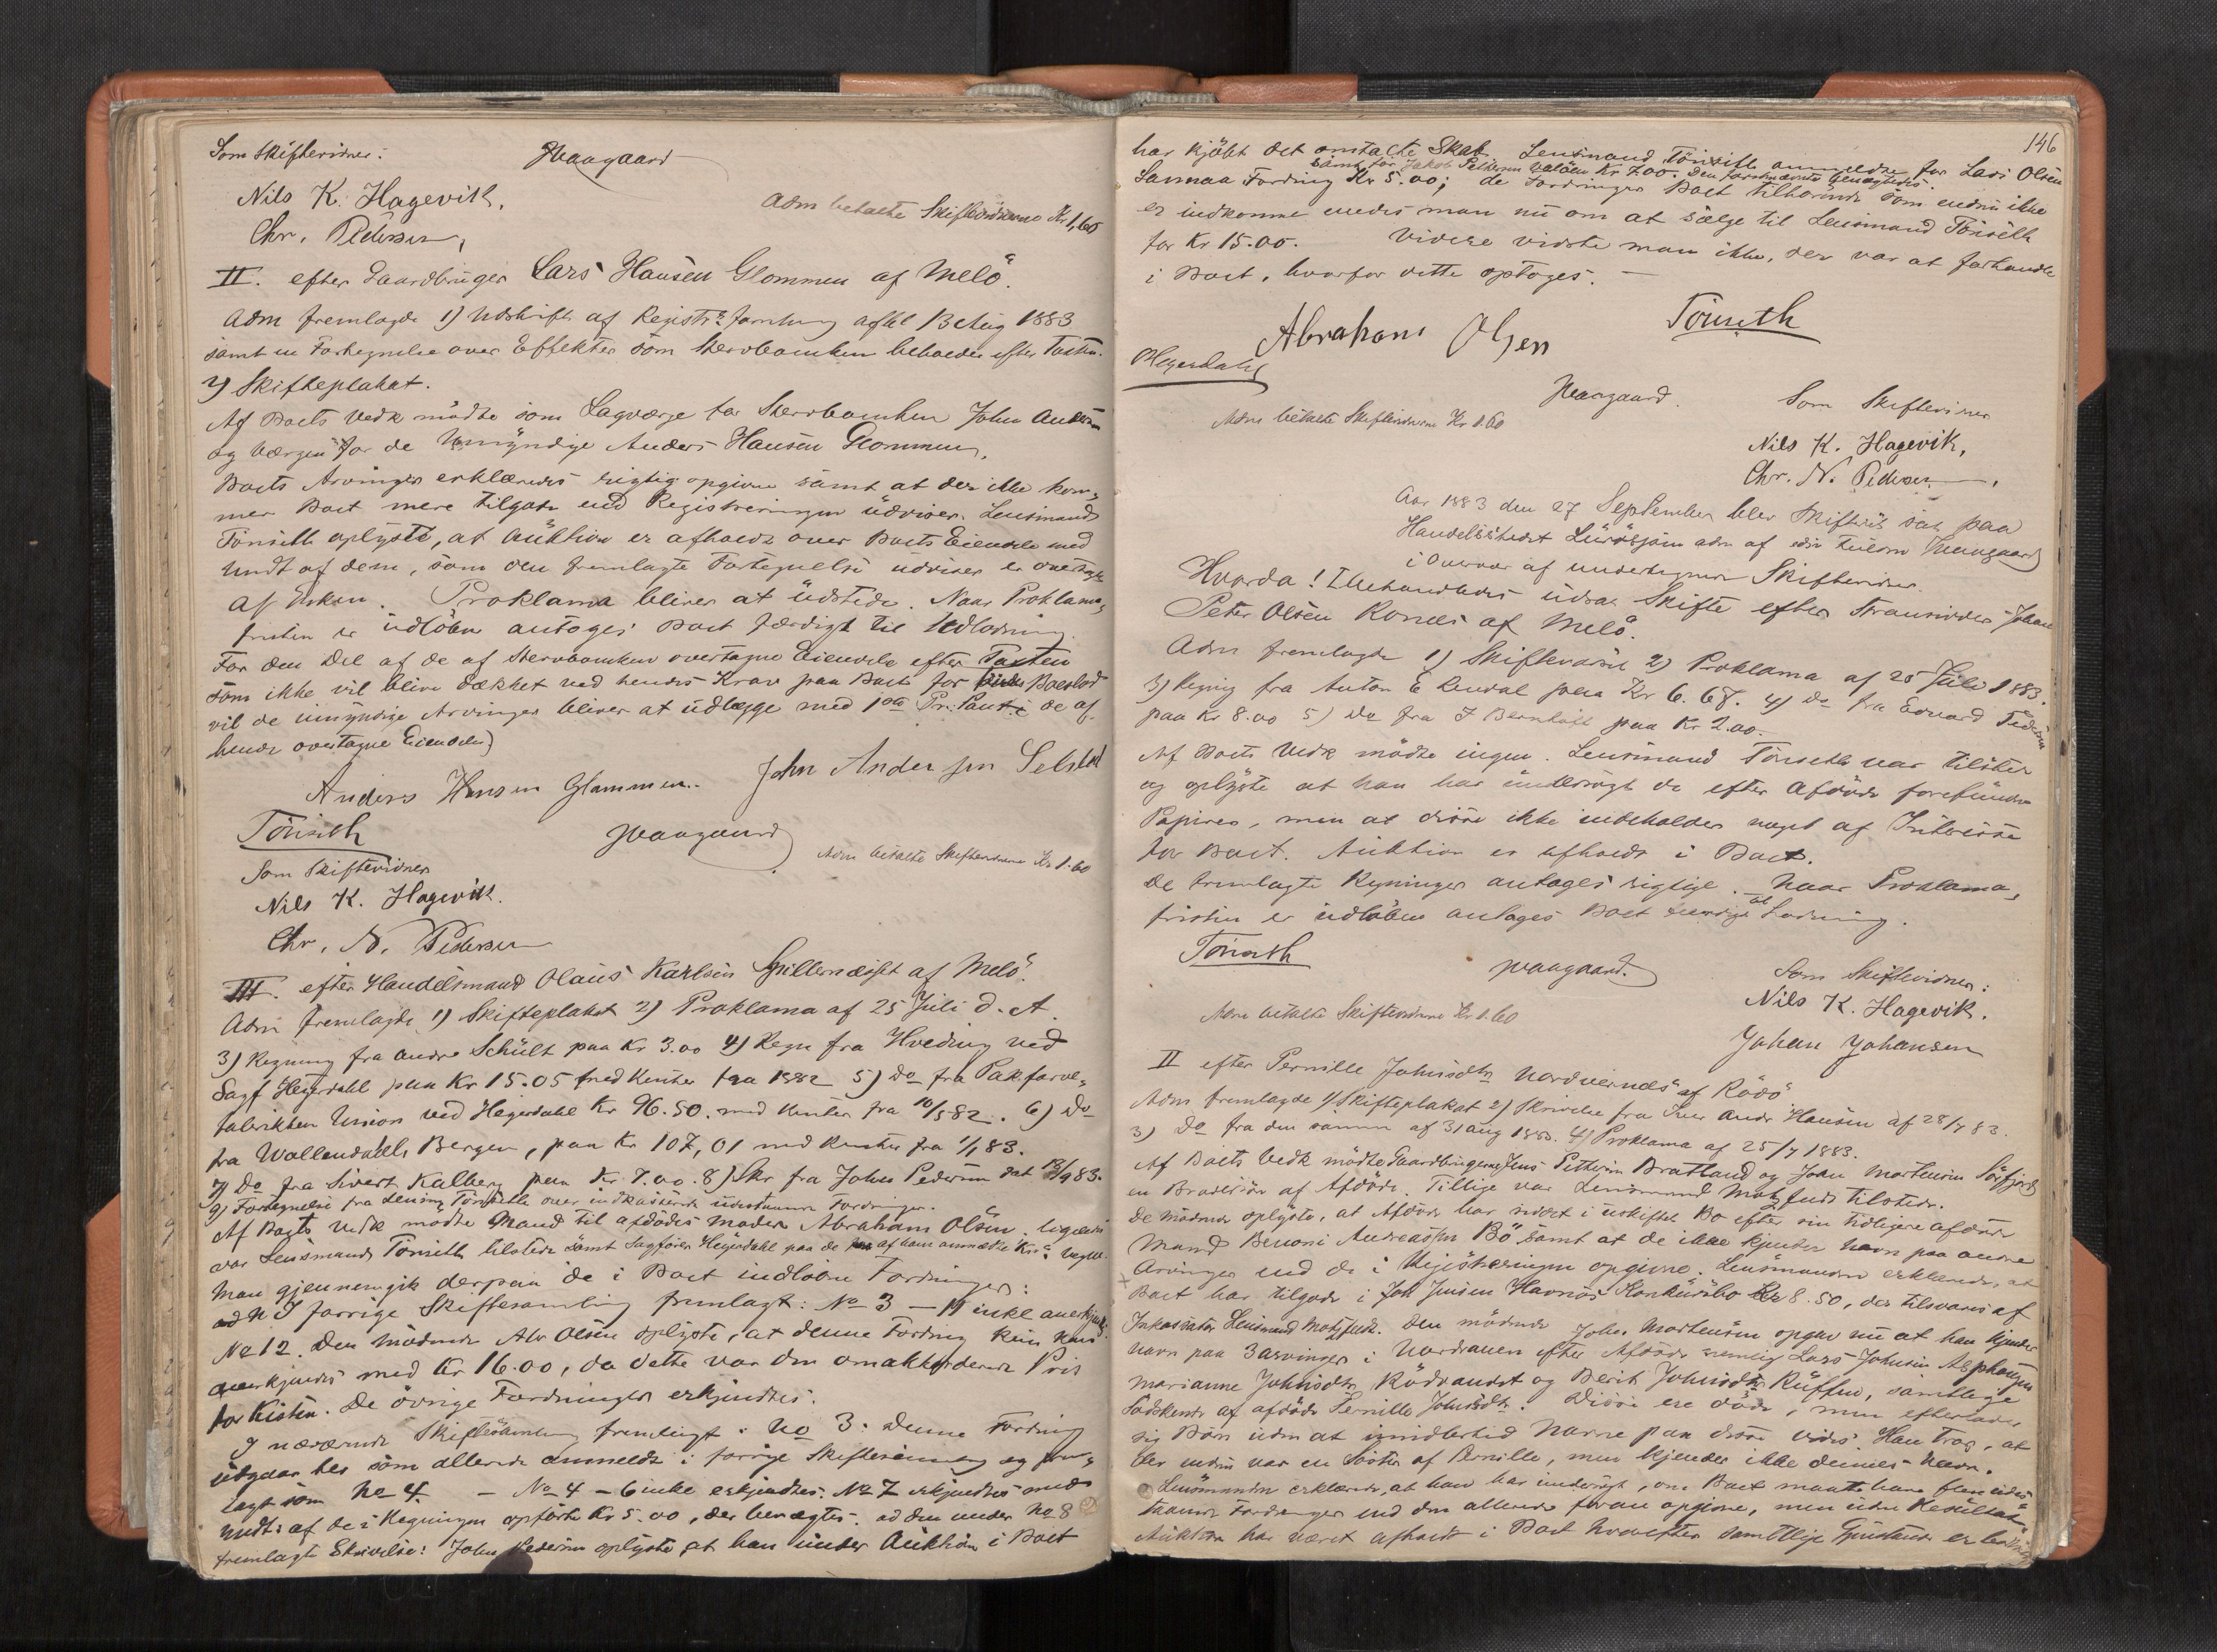 Som Skiftevidner:
Haagaard
Nils K. Hagevik.
Adm betalte Skiftevidnerne Kr 1,60
Chr. Pedersen,
II. efter Gaardbruger Lars Hansen Glommen af Melö.
Adm fremlagde 1) Udskrift af Registr: forretning afhl 13 Aug 1883
samt en Fortegnelse over Effekter som Stervboenken beholder efter Taxten.
2) Skifteplakat.
Af Boets Vedk mödte som Lagværge for Stervboenken John Andersen
og Værgen for de Umyndige Anders Hansen Glommen.
Boets Arvinger erklæredes rigtig opgivne samt at der ikke kom-
mer Boet mere tilgode end Registreringen udviser. Lensmand
Tönseth oplyste, at Auktion er afholdt over Boets Eiendele med
Undt af dem, som den fremlagte Fortegnelse udviser er overtagne
af Enken. Proklama bliver at udstede. Naar Proklama-
fristen er udlöben antoges Boet færdigt til Udlodning.
For den Del af de af Stervboenken overtagne Eiendele efter Taxten
som ikke vil blive dækket ved hendes Krav paa Boet for Boeslod
vil de umyndige Arvinger bliver at udlægge med 1ste Pr: Pant i de af
hende overtagne Eiendele
Anders Hansen Glommen. John Andersen Selstad
Tönseth
Haagaard
Adm betalte Skiftevidnerne Kr 1.60
Som Skiftevidner
Nils K. Hagevik.
Chr. N. Pedersen
III. efter Handelsmand Olaus Karlsen Spillernæsset af Melö.
Adm fremlagde 1) Skifteplakat 2) Proklama af 25 Juli d. A.
3) Regning fra Andre Schult paa Kr 3.00 4) Regn fra Hveding ved
Sagf Heyerdahl paa Kr 15.05 med Renter fra 1882 5) Do fra Pak.farve-
fabrikken Union ved Heyerdahl Kr 96.50. med Renter fra 10/5 82. 6) Do
fra Wallendahl, Bergen, paa Kr 107,01 med Renter fra 1/1 83.
7) Do fra Sivert Kalberg paa Kr. 7.00. 8) Skr fra Johs Pedersen dat 12/9 83.
9) Fortegnelse fra Lensm Tönseth over indkasserede udestaaende Fordringer.
Af Boets Vedk mödte Mand til afdödes Moder Abraham Olsen. ligeledes
var Lensmand Tönseth tilstede samt Sagförer Heyerdahl paa de af ham anmeldte Kr:s vegne.
Man gjennemgik derpaa de i Boet indlöbne Fordringer:
ad N I forrige Skiftesamling fremlagt: No 3 — 11 inkl anerkjendt.
No 12. Den mödende Abr Olsen oplyste, at denne Fordring kun kan
anerkjendes med Kr 16.00, da dette var den omakkorderede Pris
for Kisten. De övrige Fordringer erkjendtes.
I nærværende Skiftesamling fremlagt: No 3: Denne Fordring
udgaar her som allerede anmeldt i forrige Skiftesamling og frem-
lagt som No 4. — No 4 — 6 inkl erkjendtes. No 7 erkjendtes med
Undt: af de i Regningen opförte Kr 5.00, der benægtes. ad den under No 8
fremlagte Skrivelse: Johs Pedersen oplyste at han under Auktion i Boet
146
har kjöbt det omtalte Skab. Lensmand Tönseth anmeldte for Lars Olsen
samt for Jakob Pettersen Valöen Kr 7.00. Den forstnævnte benægtedes.
Sannaa Fordring Kr 5.00; de Fordringer Boet tilhörende som endnu ikke
er indkomne enedes man nu om at sælge til Lensmand Tönseth
for Kr 15.00. Videre vidste man ikke, der var at forhandle
i Boet, hvorfor dette optoges. —
Abraham Olsen
Tönseth
Heyerdahl
Haagaard.
Som Skiftevidner
Adm betalte Skiftevidnerne Kr 1.60
Nils K. Hagevik,
Chr. N. Pedersen.
Aar 1883 den 27 September blev Skifteret sat paa
Handelsstedet Luröjsjöen adm af edsv Fuldm Haagaard
i Overvær af undertegnede Skiftevidner.
Hvorda! I Behandledes udsat Skifte efter Strandsidder Johan
Peter Olsen Konæs af Melö.
Adm fremlagde 1) Skiftevarsel 2) Proklama af 25 Juli 1883.
3) Regning fra Anton E Rendal paa Kr 6.68. 4) Do fra Edvard Pedersen
paa Kr 8.00 5) Do fra J Bernhoft paa Kr 2.00.
Af Boets Vedk mödte ingen. Lensmand Tönseth var tilstede
og oplyste at han har undersögt de efter Afdöde forefundne
Papirer, men at disse ikke indeholder noget af Interesse
for Boet. Auktion er afholdt i Boet.
De fremlagte Regninger antoges rigtige. — Naar Proklama-
fristen er udlöben antages Boet færdigt til Lodning.
Tönseth
Haagaard.
Som Skiftevidner:
Adm betalte Skiftevidnerne Kr 1.60
Nils K. Hagevik.
Johan Johansen
II efter Pernille Johnsdtr Nordvernes af Rödö
Adm fremlagde 1) Skifteplakat 2) Skrivelse fra Andr Hansen af 28/7 83.
3) Do fra den samme af 31 Aug 1883. 4) Proklama af 25/7 1883.
Af Boets Vedk mödte Gaardbrugerne Jens Pettersen Bratland og Johan Mortensen Sörfjord
en Brodersön af Afdöde. Tillige var Lensmand Motzfeldt tilstede.
De mödende oplyste, at Afdöde har siddet i uskiftet Bo efter sin tidligere afdöde
Mand Benoni Andreassen Bö samt at de ikke kjender Navn paa andre
Arvinger end de i Registreringen opgivne. Lensmanden erklærede, at
Boet har tilgode i Joh Jensen Havnös Konkursbo Kr 8.50, der tilsvares af
Inkassator Lensmand Motzfeldt. Den mödende Johs Mortensen opgav nu at han kjender
Navn paa 3 arvinger i Nordranen efter Afdöde nemlig Lars Johnsen Alphaugen
Marianne Johnsdtr Rödvandet og Berit Johnsdtr Ruffen, samtlige
Södskende af afdöde Pernille Johnsdtr. Disse ere döde, men efterlader
sig Börn uden at imidlertid Navne paa disse vides. Han tror, at
der endnu var en Söster af Pernille, men kjender ikke dennes Navn.
Lensmanden erklærede, at han har undersögt, om Boet maatte have flere udes-
taaende Fordringer end den allerede foran opgivne, men uden Resultat.
Auktion har været afholdt i Boet hvorefter samtlige Gjenstande er